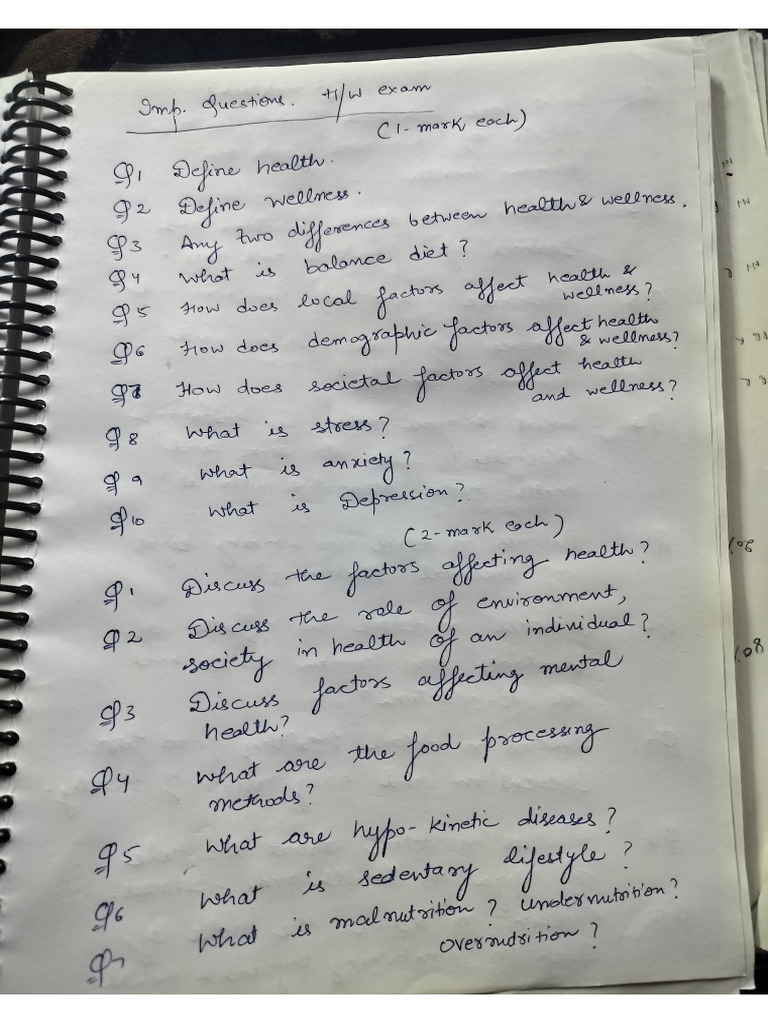 Imp. Questions. H/W exam
(1-mark each)
Q1 Define health.
Q2 Define wellness.
Q3 Any two differences between health & wellness.
Q4 What is balance diet?
Q5 How does local factors affect health &
wellness?
Q6 How does demographic factors affect health
& wellness?
Q7 How does societal factors affect health
and wellness?
Q8 What is stress?
Q9 What is anxiety?
Q10 What is Depression?
(2-mark each)
Q1 Discuss the factors affecting health?
Q2 Discuss the role of environment,
society in health of an individual?
Q3 Discuss factors affecting mental
health?
Q4 What are the food processing
methods?
Q5 What are hypo-kinetic diseases?
Q6 What is sedentary lifestyle?
Q7 What is malnutrition? undernutrition?
overnutrition?